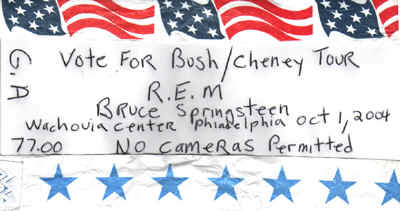 G.A
Vote FOR Bush/Cheney TOUR
R.E.M
Bruce Springsteen
Wachovia Center Philadelphia Oct 1, 2004
77.00 NO CAMERAS Permitted